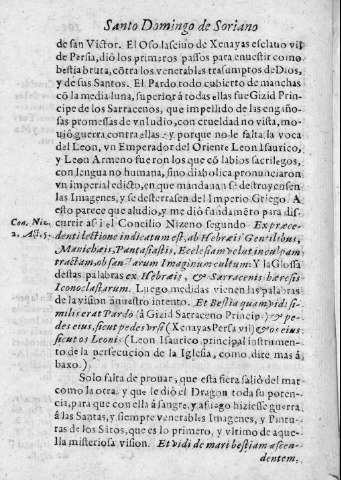 Santo Domingo de Soriano
de san Victor. El Oso lasciuo de Xenayas esclauo vil
de Persia, diò los primeros passos para enuestir como
bestia bruta, cõtra los venerables trasumptos de Dios,
y de sus Santos. El Pardo todo cubierto de manchas
cõ la media luna, superior à todas ellas fue Gizid Prin-
cipe de los Sarracenos, que impelido de las engaño-
sas promessas de vn Iudio, con crueldad no vista, mo-
uiò guerra contra ellas: y porque no le falta, la voca
del Leon, vn Emperador del Oriente Leon Isaurico,
y Leon Armeno fueron los que cõ labios sacrilegos,
con lengua no humana, sino diabolica pronunciaron
vn imperial edicto, en que mandauan se destroyessen
las Imagenes, y se desterrasen del Imperio Griego. A
esto parece que aludio, y me diò fundamẽto para dis-
Con. Niz. 2. Act. 5.
currir assi el Concilio Nizeno segundo Ex præce-
denti lectione indicatum est, ab Hebræis Gentilibus,
Manichæis, Pantasiastis, Ecclesiam velut in culpam
tractam, ob sanctarum Imaginum cultum: Y la Glossa
destas palabras ex Hebræis, & Sarracenis hæresis
Iconoclastarum. Luego medidas vienen las palabras
de la vision à nuestro intento. Et Bestia quam vidi si-
milis erat Pardo (à Gizid Sarraceno Principe) & pe-
des eius, sicut pedes vrsi (Xenayas Persa vil) & os eius
sicut os Leonis (Leon Isaurico principal instrumen-
to de la persecucion de la Iglesia, como dire mas à
baxo.)
Solo falta de prouar, que esta fiera saliò del mar
como la otra, y que le diò el Dragon toda su poten-
cia, para que con ella à sangre, y a fuego hiziesse guerra
à las Santas, y siempre venerables Imagenes, y Pintu-
ras de los Sãtos, que es lo primero, y vltimo de aque-
lla misteriosa vision. Et vidi de mari bestiam ascen-
dentem: